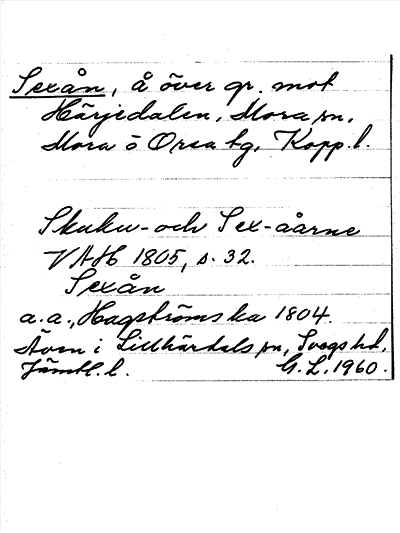 Sexån, å över gr. mot
Härjedalen, Mora sn,
Mora o Orsa tg, Kopp. l.
Skuku- och Sex-åarne
VAH 1805, s. 32.
Sexån
a.a., Hagströms ka 1804.
Även i Lillhärdals sn, Svegs hd,
Jämtl. l. G. L. 1960.